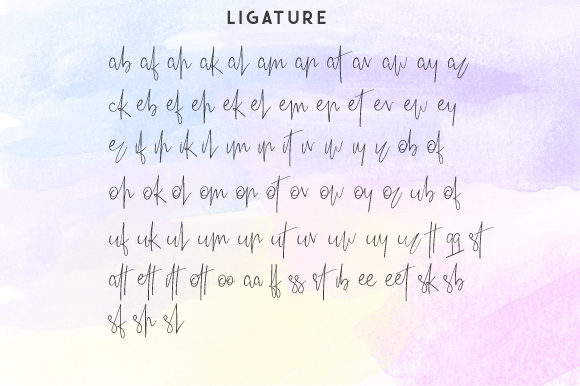 LIGATURE
ab af ah ak al am ap at av aw ay az
ck eb ef eh ek el em ep et ev ew ey
ez if ih ik il im ip it iv iw iy iz ob of
oh ok ol om op ot ov ow oy oz ub of
uf uk ul um up ut uv uw uy uz tt gg st
att ett itt ott oo aa ff ss rt ib ee eet sk sb
sf sh sl